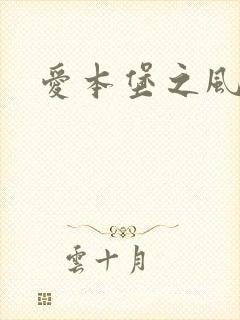 愛本堡之風
雲十月